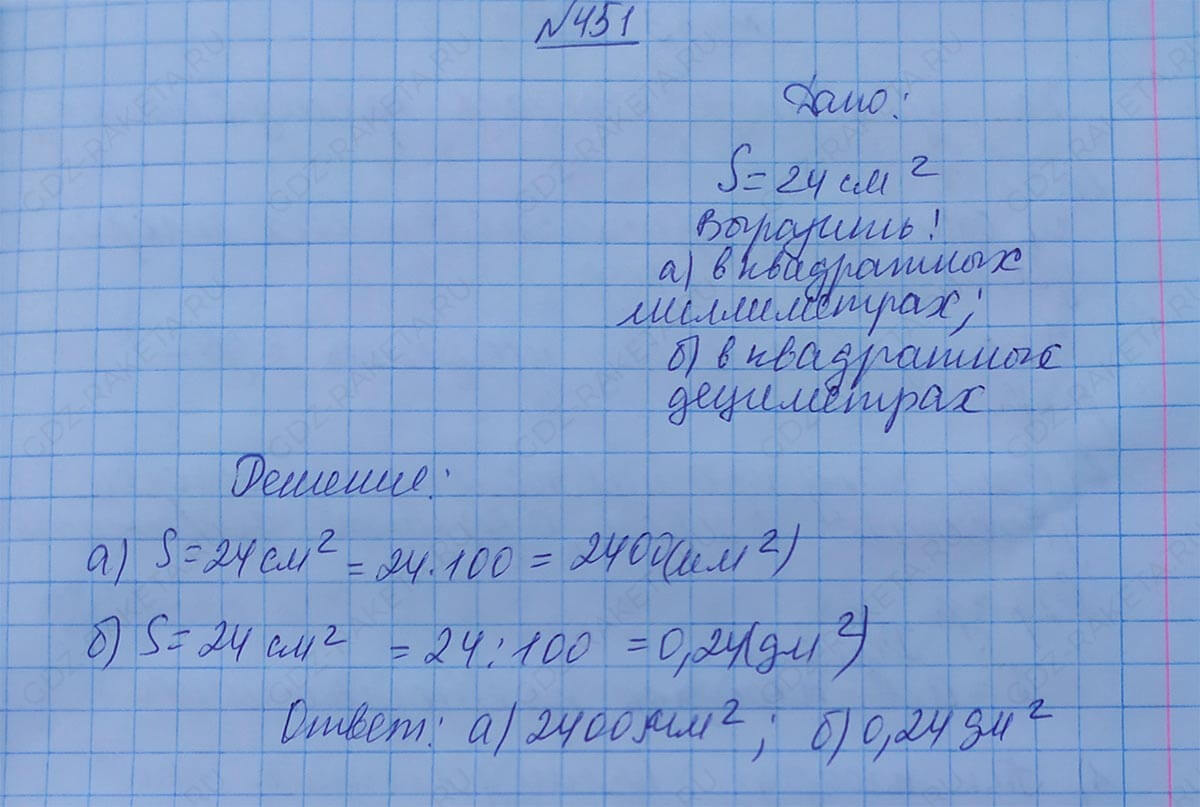 №451
Дано:
S = 24 см²
Выразить!
а) в квадратных
миллиметрах;
б) в квадратных
дециметрах
Решение:
а) S = 24 см² = 24 · 100 = 2400 (мм²)
б) S = 24 см² = 24 : 100 = 0,24 (дм²)
Ответ: а) 2400 мм²; б) 0,24 дм²
GDZ-RAKETA.RU